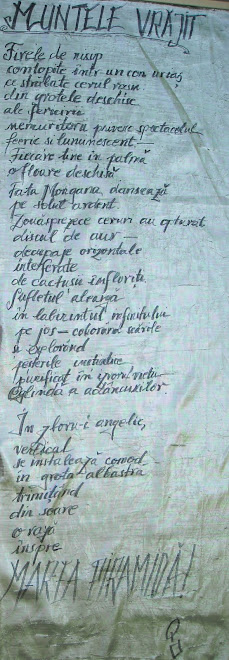 MUNTELE VRĂJIT
Firele de nisip
contopite într-un con uriaș
ce străbate cerul
din grotele deschise
ale
nemuritoru privesc spectacolul
feeric si luminescent —
Fiecare tine în palmă
o floare deschisă
Fata Morgana dansează
pe solul ardent.
Douăsprezece ceruri au
discul de aur —
decupaje orizontale
de cactusii înfloriți.
Sufletul aleargă
în labirintul infinitului
pe jos — coboară scările
si explorând
pesterile
purificat în
Oglinda a adâncurilor.
În zboru-i angelic,
vertical
se instalează comod —
în grota-albastra
trimițând
din soare
o rază
înspre
MAREA PIRAMIDĂ!